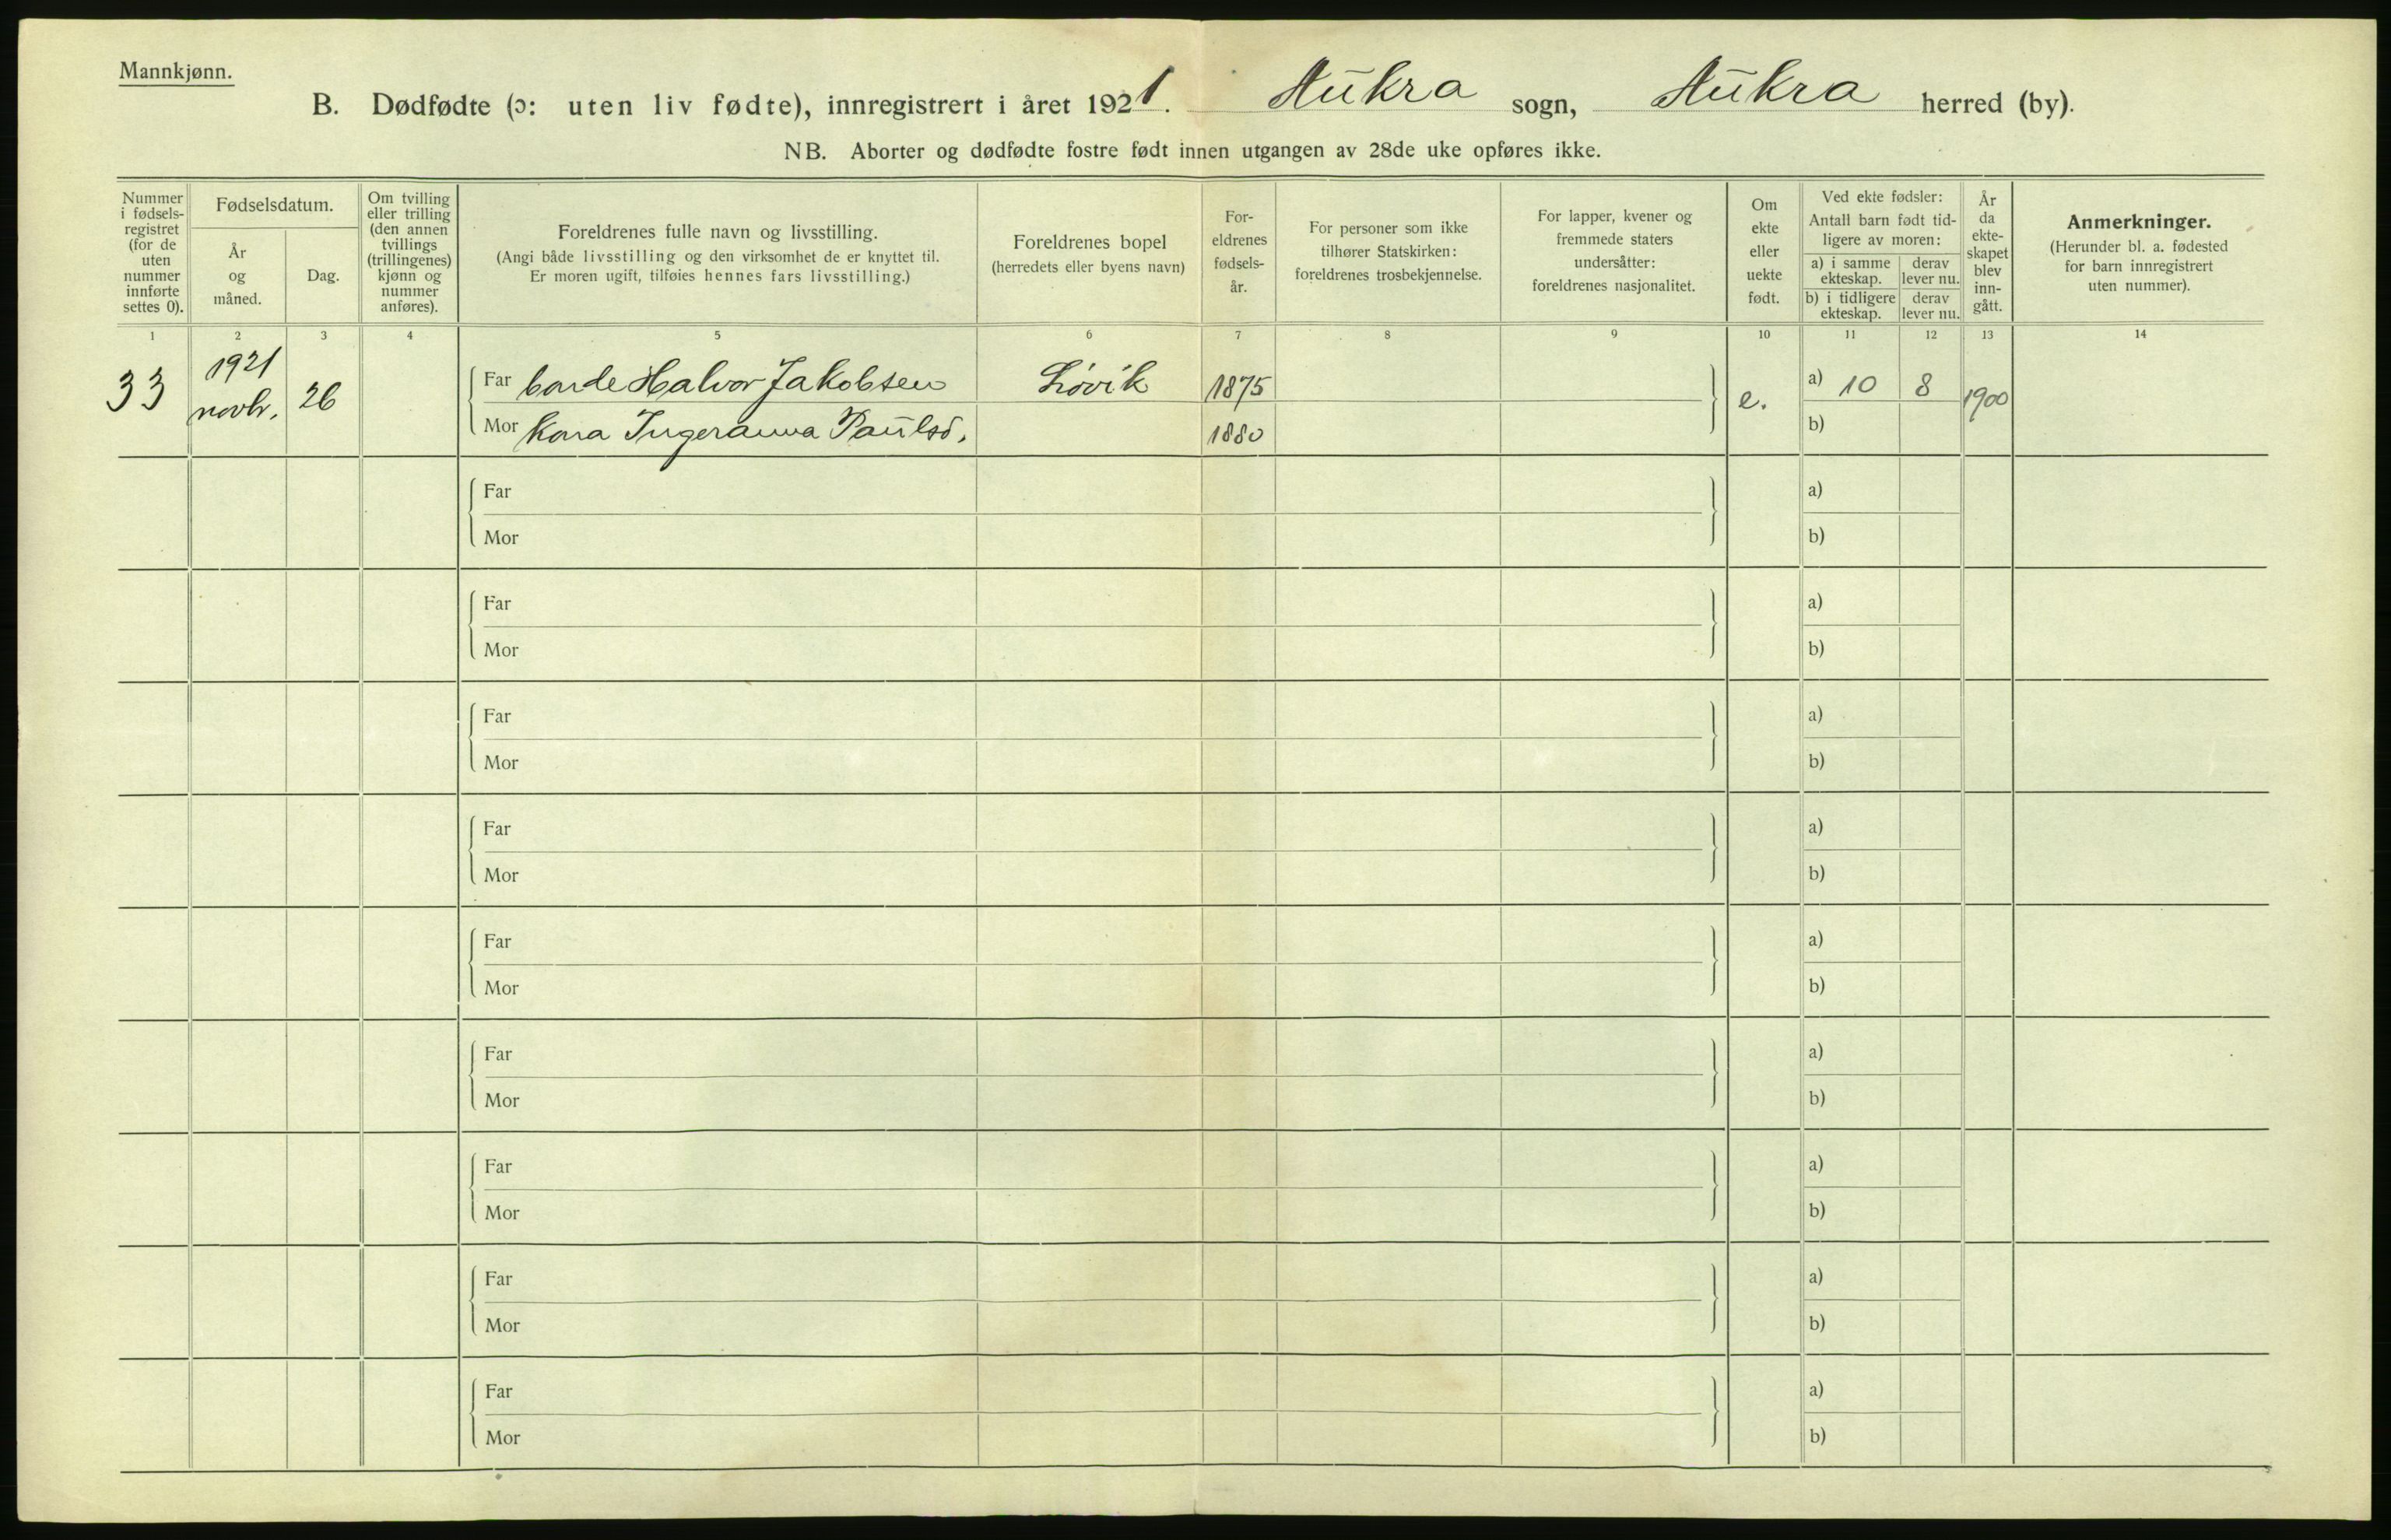 Mannkjønn.
B. Dødfødte (ɔ: uten liv fødte), innregistrert i året 1921. Aukra sogn, Aukra herred (by).
NB. Aborter og dødfødte fostre født innen utgangen av 28de uke opføres ikke.
Nummer
i fødsels-
registret
(for de
uten
nummer
innførte
settes 0).
Fødselsdatum.
År
og
måned.
Dag.
Om tvilling
eller trilling
(den annen
tvillings
(trillingenes)
kjønn og
nummer
anføres).
Foreldrenes fulle navn og livsstilling.
(Angi både livsstilling og den virksomhet de er knyttet til.
Er moren ugift, tilføies hennes fars livsstilling.)
Foreldrenes bopel
(herredets eller byens navn)
For-
eldrenes
fødsels-
år.
For personer som ikke
tilhører Statskirken:
foreldrenes trosbekjennelse.
For lapper, kvener og
fremmede staters
undersåtter:
foreldrenes nasjonalitet.
Om
ekte
eller
uekte
født.
Ved ekte fødsler:
Antall barn født tid-
ligere av moren:
a) i samme
ekteskap.
derav
lever nu.
b) i tidligere
ekteskap.
derav
lever nu.
År
da
ekte-
skapet
blev
inn-
gått.
Anmerkninger.
(Herunder bl. a. fødested
for barn innregistrert
uten nummer).
1 2 3 4 5 6 7 8 9 10 11 12 13 14
33 1921 novbr. 26
Far Halvor Jakobsen Lövik 1875 e. a) 10 8 1900
Mor Kona Ingeranna Paulsd. 1880 b)
Far a)
Mor b)
Far a)
Mor b)
Far a)
Mor b)
Far a)
Mor b)
Far a)
Mor b)
Far a)
Mor b)
Far a)
Mor b)
Far a)
Mor b)
Far a)
Mor b)